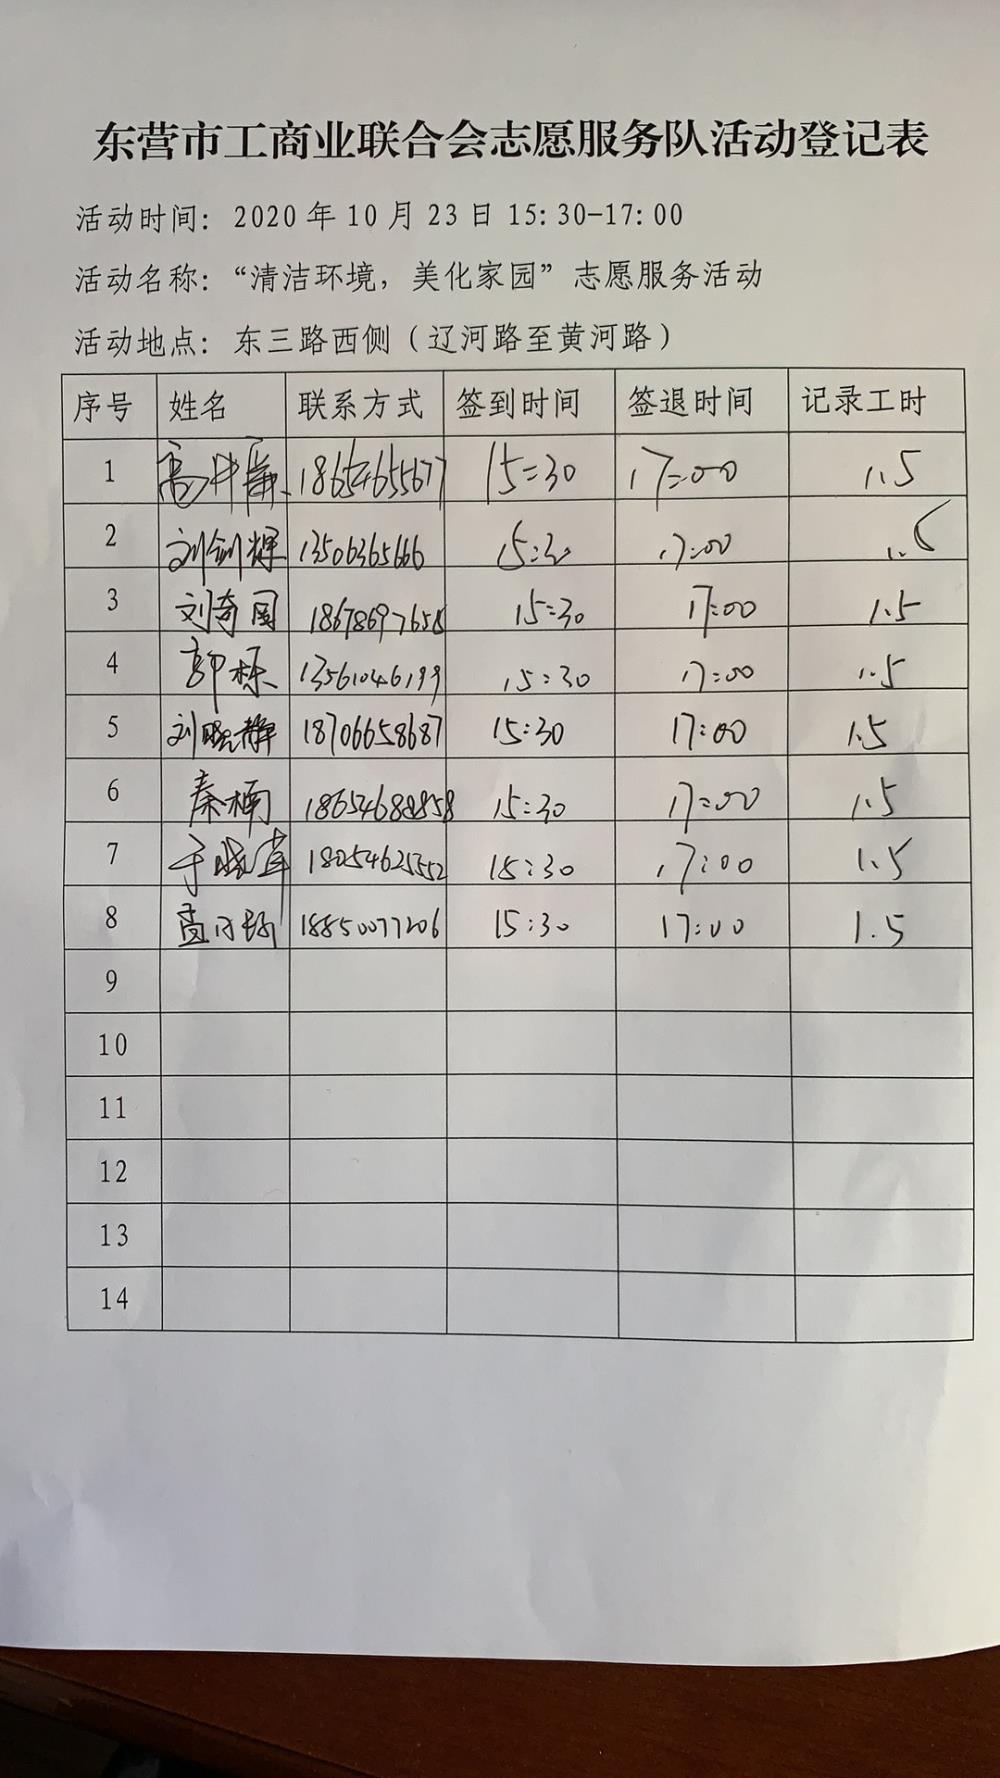 东营市工商业联合会志愿服务队活动登记表
活动时间：2020年10月23日15:30-17:00
活动名称：“清洁环境，美化家园”志愿服务活动
活动地点：东三路西侧（辽河路至黄河路）
序号 姓名 联系方式 签到时间 签退时间 记录工时
1 18654655677 15:30 17:00 1.5
2 刘剑辉 13506365666 15:30 17:00 1.5
3 刘奇国 18678697658 15:30 17:00 1.5
4 郭栋 13561046199 15:30 17:00 1.5
5 刘晓静 18706658687 15:30 17:00 1.5
6 秦楠 18654688858 15:30 17:00 1.5
7 于晓莲 18054625552 15:30 17:00 1.5
8 18850077206 15:30 17:00 1.5
9
10
11
12
13
14